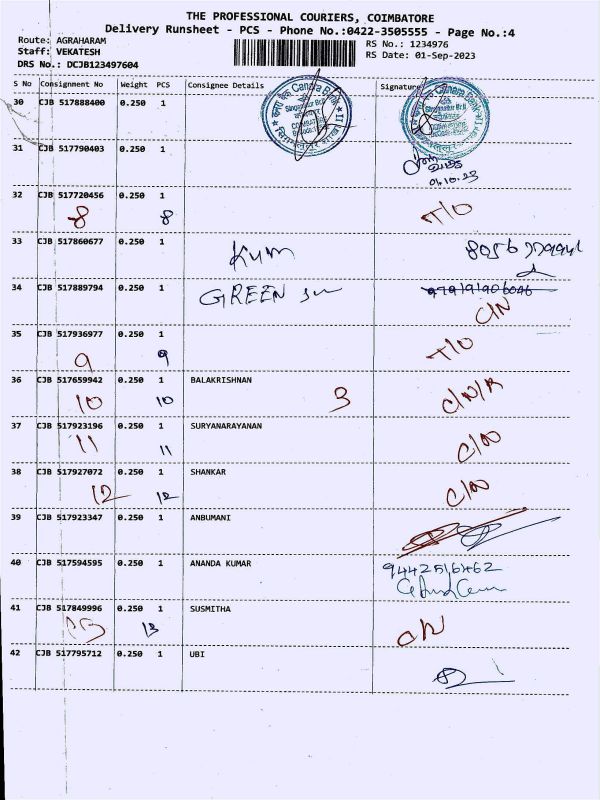 THE PROFESSIONAL COURIERS, COIMBATORE
Delivery Runsheet - PCS - Phone No.:0422-3505555 - Page No.:4
Route: AGRAHARAM
Staff: VEKATESH
DRS No.: DCJB123497604
RS No.: 1234976
RS Date: 01-Sep-2023
S No Consignment No Weight PCS Consignee Details Signature
30 CJB 517888400 0.250 1
31 CJB 517790403 0.250 1
32 CJB 517720456 0.250 1
8 8 T/O
33 CJB 517860677 0.250 1
34 CJB 517889794 0.250 1
GREEN
C/N
35 CJB 517936977 0.250 1
9 9 T/O
36 CJB 517659942 0.250 1 BALAKRISHNAN
10 10 3 C/N/R
37 CJB 517923196 0.250 1 SURYANARAYANAN
11 11 C/N
38 CJB 517927072 0.250 1 SHANKAR
12 12 C/N
39 CJB 517923347 0.250 1 ANBUMANI
40 CJB 517594595 0.250 1 ANANDA KUMAR
9442516462
41 CJB 517849996 0.250 1 SUSMITHA
13 13 C/N
42 CJB 517795712 0.250 1 UBI